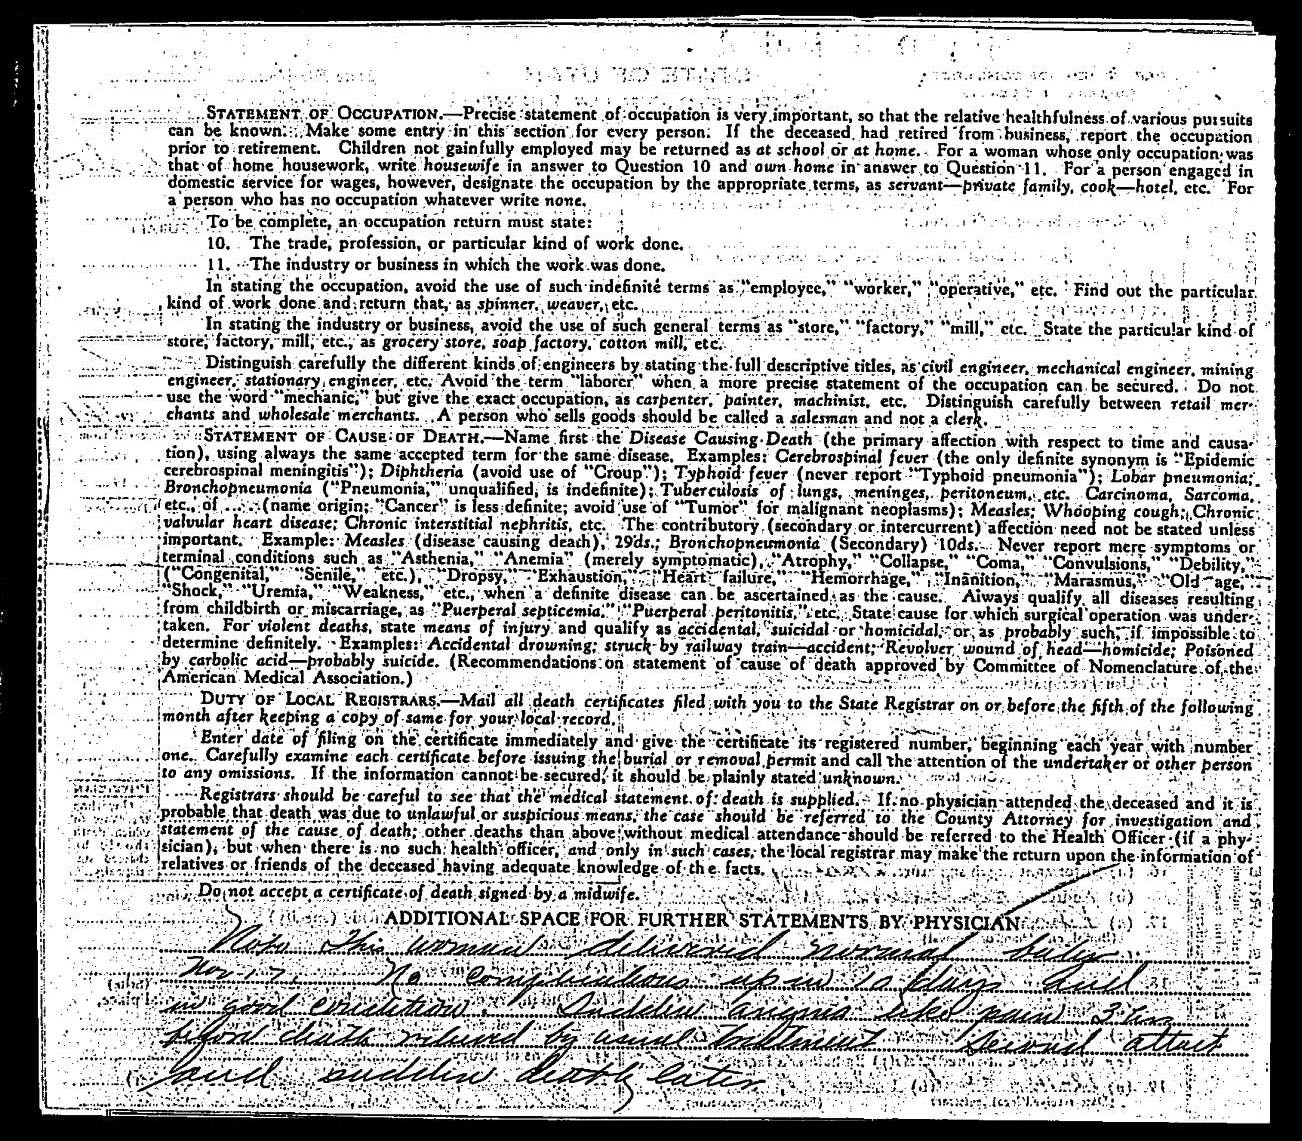 STATEMENT OF OCCUPATION.—Precise statement of occupation is very important, so that the relative healthfulness of various pursuits
can be known. Make some entry in this section for every person. If the deceased had retired from business, report the occupation
prior to retirement. Children not gainfully employed may be returned as at school or at home. For a woman whose only occupation was
that of home housework, write housewife in answer to Question 10 and own home in answer to Question 11. For a person engaged in
domestic service for wages, however, designate the occupation by the appropriate terms, as servant—private family, cook—hotel, etc. For
a person who has no occupation whatever write none.
To be complete, an occupation return must state:
10. The trade, profession, or particular kind of work done.
11. The industry or business in which the work was done.
In stating the occupation, avoid the use of such indefinite terms as "employee," "worker," "operative," etc. Find out the particular
kind of work done and return that, as spinner, weaver, etc.
In stating the industry or business, avoid the use of such general terms as "store," "factory," "mill," etc. State the particular kind of
store, factory, mill, etc., as grocery store, soap factory, cotton mill, etc.
Distinguish carefully the different kinds of engineers by stating the full descriptive titles, as civil engineer, mechanical engineer, mining
engineer, stationary engineer, etc. Avoid the term "laborer" when a more precise statement of the occupation can be secured. Do not
use the word "mechanic," but give the exact occupation, as carpenter, painter, machinist, etc. Distinguish carefully between retail mer-
chants and wholesale merchants. A person who sells goods should be called a salesman and not a clerk.
STATEMENT OF CAUSE OF DEATH.—Name first the Disease Causing Death (the primary affection with respect to time and causa-
tion), using always the same accepted term for the same disease. Examples: Cerebrospinal fever (the only definite synonym is "Epidemic
cerebrospinal meningitis"); Diphtheria (avoid use of "Croup"); Typhoid fever (never report "Typhoid pneumonia"); Lobar pneumonia;
Bronchopneumonia ("Pneumonia," unqualified, is indefinite); Tuberculosis of lungs, meninges, peritoneum, etc. Carcinoma, Sarcoma,
etc., of .... (name origin; "Cancer" is less definite; avoid use of "Tumor" for malignant neoplasms); Measles; Whooping cough; Chronic
valvular heart disease; Chronic interstitial nephritis, etc. The contributory (secondary or intercurrent) affection need not be stated unless
important. Example: Measles (disease causing death), 29ds.; Bronchopneumonia (Secondary) 10ds. Never report mere symptoms or
terminal conditions such as "Asthenia," "Anemia" (merely symptomatic), "Atrophy," "Collapse," "Coma," "Convulsions," "Debility,"
("Congenital," "Senile," etc.), "Dropsy," "Exhaustion," "Heart failure," "Hemorrhage," "Inanition," "Marasmus," "Old age,"
"Shock," "Uremia," "Weakness," etc., when a definite disease can be ascertained as the cause. Always qualify all diseases resulting
from childbirth or miscarriage, as "Puerperal septicemia," "Puerperal peritonitis," etc. State cause for which surgical operation was under-
taken. For violent deaths, state means of injury and qualify as accidental, suicidal or homicidal, or as probably such, if impossible to
determine definitely. Examples: Accidental drowning; struck by railway train—accident; Revolver wound of head—homicide; Poisoned
by carbolic acid—probably suicide. (Recommendations on statement of cause of death approved by Committee of Nomenclature of the
American Medical Association.)
DUTY OF LOCAL REGISTRARS.—Mail all death certificates filed with you to the State Registrar on or before the fifth of the following
month after keeping a copy of same for your local record.
Enter date of filing on the certificate immediately and give the certificate its registered number, beginning each year with number
one. Carefully examine each certificate before issuing the burial or removal permit and call the attention of the undertaker or other person
to any omissions. If the information cannot be secured, it should be plainly stated unknown.
Registrars should be careful to see that the medical statement of death is supplied. If no physician attended the deceased and it is
probable that death was due to unlawful or suspicious means, the case should be referred to the County Attorney for investigation and
statement of the cause of death; other deaths than above without medical attendance should be referred to the Health Officer (if a phy-
sician), but when there is no such health officer, and only in such cases, the local registrar may make the return upon the information of
relatives or friends of the deceased having adequate knowledge of the facts.
Do not accept a certificate of death signed by a midwife.
ADDITIONAL SPACE FOR FURTHER STATEMENTS BY PHYSICIAN
Note This woman delivered normal baby
Nov 17. No complications up in 10 days and
in good condition. Sudden angina like pain 3 hrs
before death relieved by usual treatment Second attack
and sudden death later